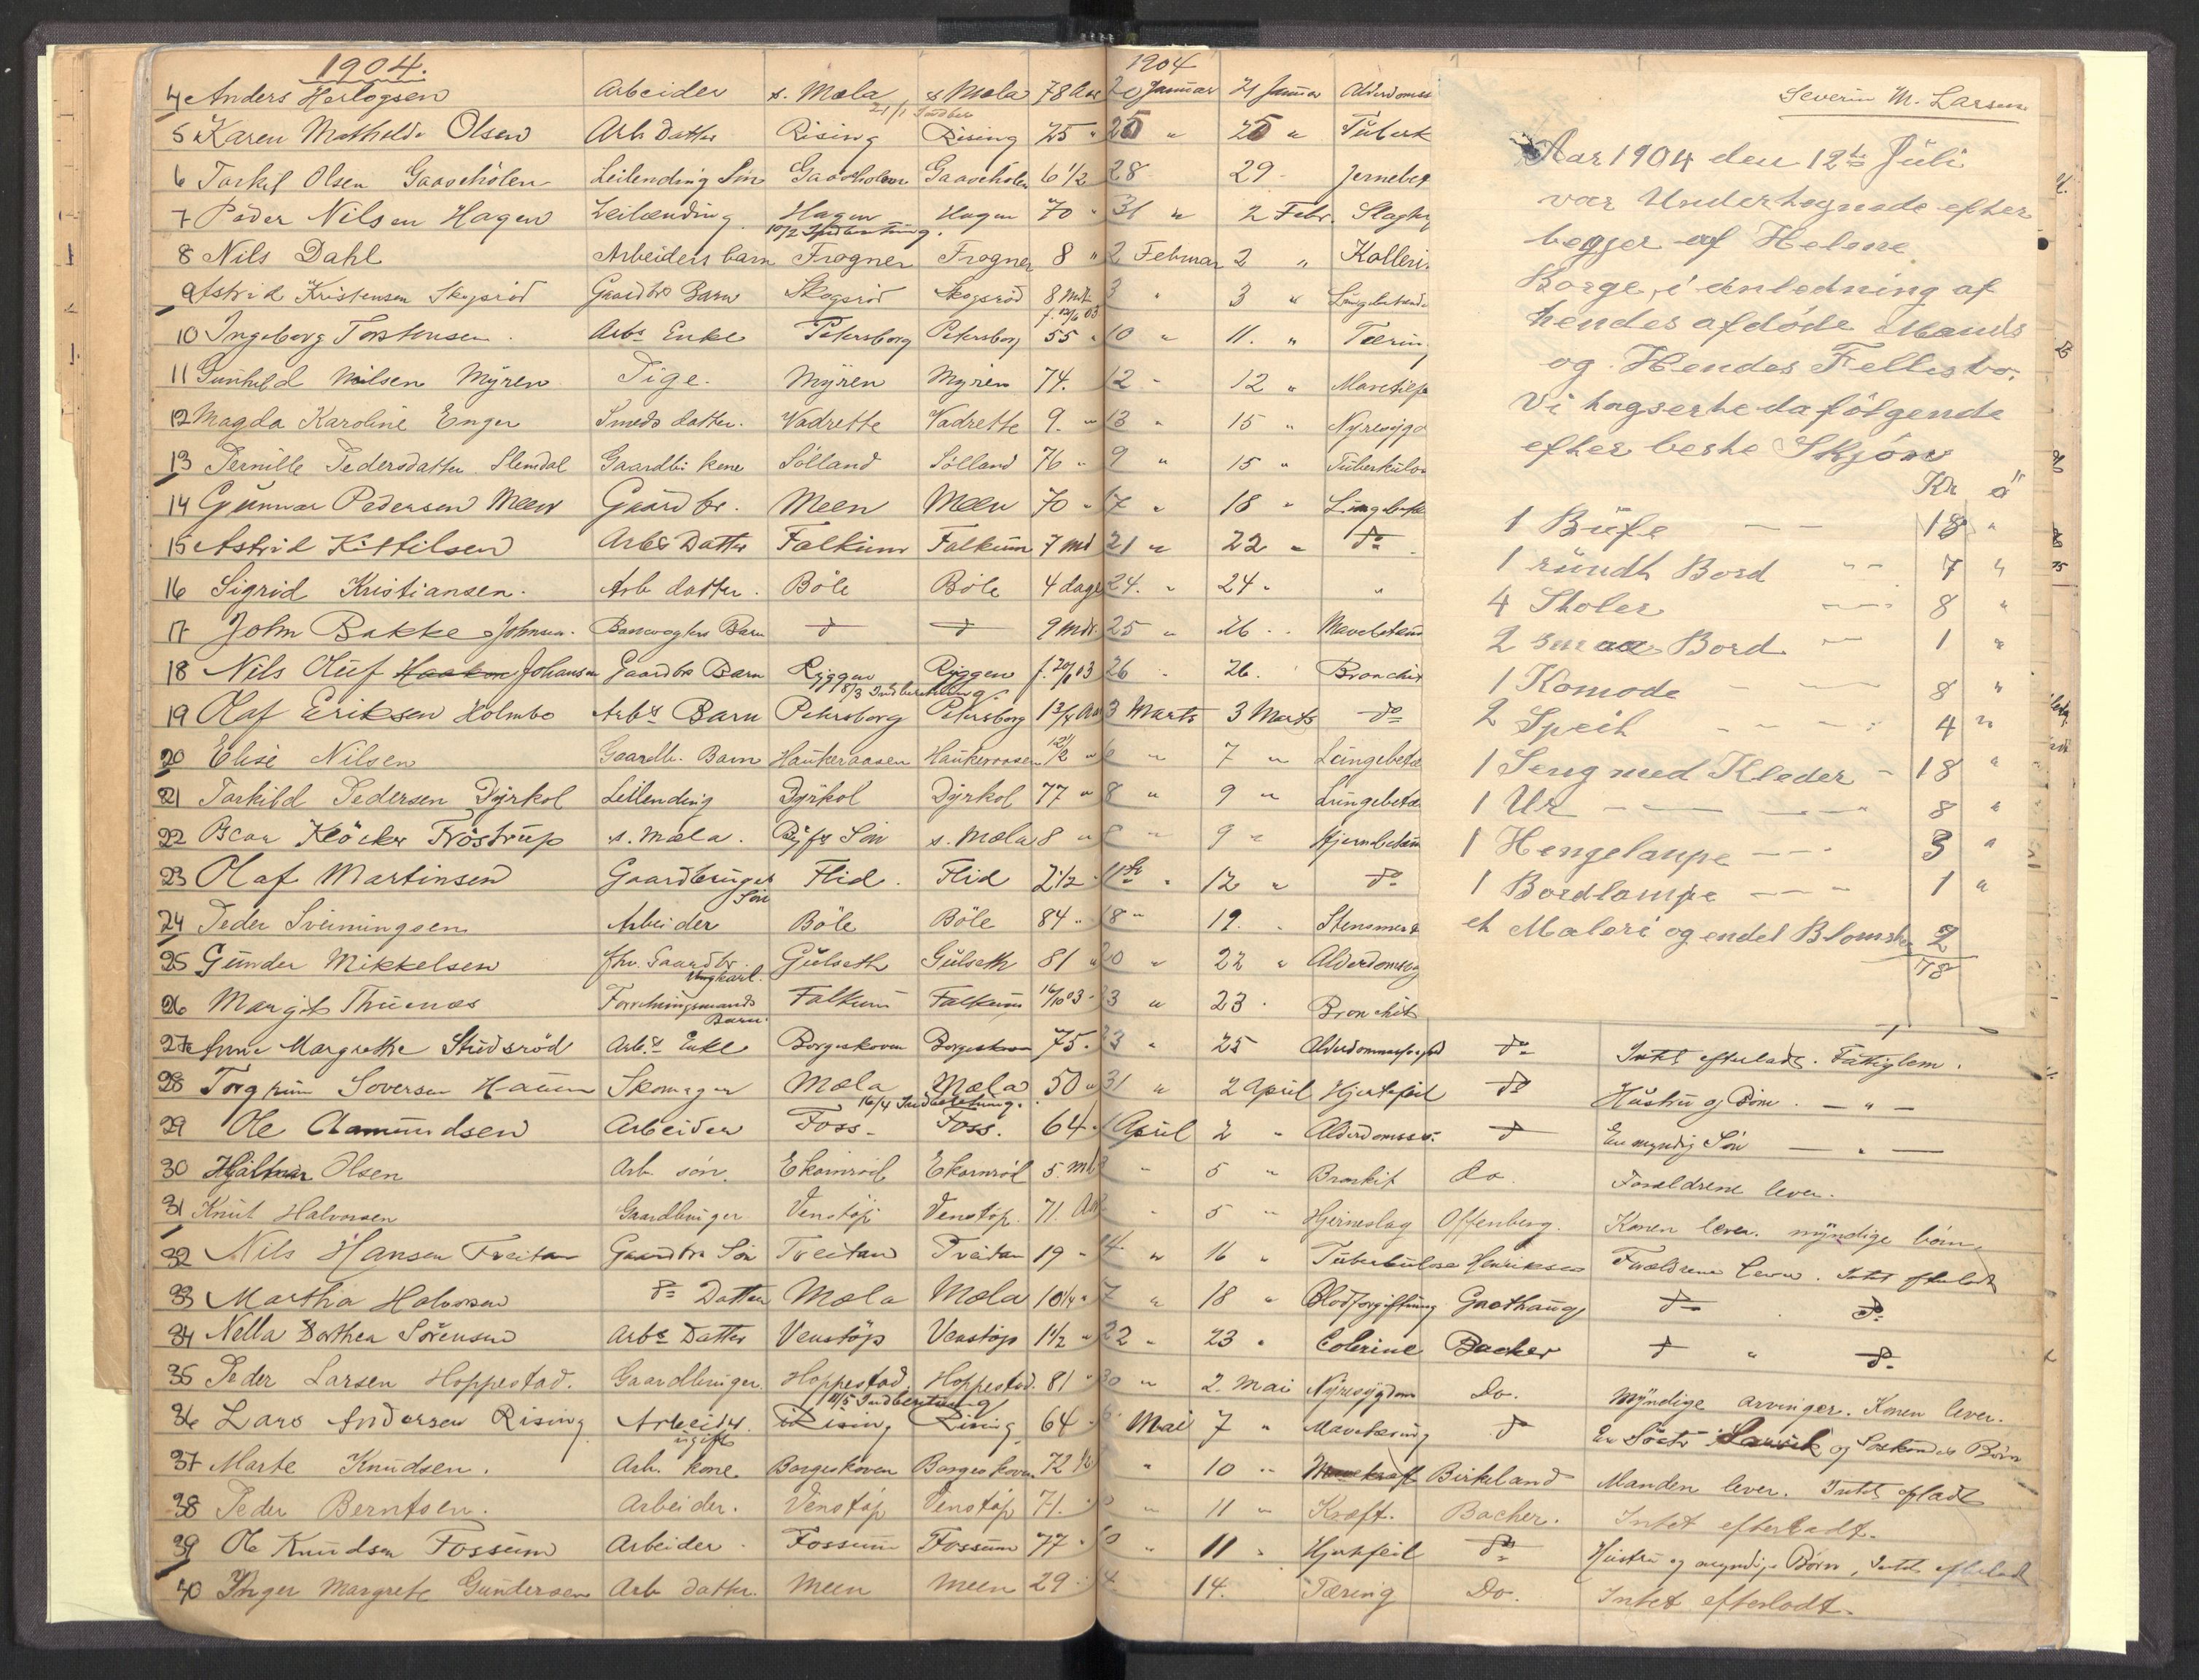 1904.
4 Anders Herlogsen Arbeider s. Mæla s. Mæla 78 Aar
5 Karen Mathilde Olsen Arb. Datter Rising Rising 25 "
6 Torkil Olsen Gaaseholen Leilending Søn Gaaseholen Gaaseholen 6 1/2
7 Peder Nilsen Hagen Leilænding Hagen Hagen 70 "
10/2 Indberetning.
8 Nils Dahl Arbeiders barn Frogner Frogner 8 "
9 Astrid Kristensen Skogsrød Gaardbr Barn Skogsrød Skogsrød 8 Mdr.
10 Ingeborg Torstensen Arbs Enke Petersborg Petersborg 55 "
11 Gunhild Nilsen Myren Pige. Myren Myren 74.
12 Magda Karoline Enger Smeds datter. Vadrette Vadrette 9. "
13 Pernille Pedersdatter Slemdal Gaardbr. kone Sølland Sølland 76 "
14 Gunnar Pedersen Meen Gaardbr. Meen Meen 70 "
15 Astrid Kittilsen Arbs Datter Falkum Falkum 7 md
16 Sigrid Kristiansen. Arb datter. Bøle Bøle 4 dage
17 John Bakke Johnsen. Banevogters Barn do do 9 mdr.
18 Nils Oluf Haakon Johansen Gaardbr Barn Ryggen Ryggen f. 20/6 03
8/3 Indberetning.
19 Olaf Eriksen Holmbo Arbs Barn Petersborg Petersborg 1 3/4 Aar
20 Elise Nilsen Gaardb. Barn Haukeraasen Haukeraasen 1/2 "
21 Torkild Pedersen Dyrkol Leilending Dyrkol Dyrkol 77 "
22 Klöcker Fröstrup s. Mæla. Søn s. Mæla 8 "
23 Olaf Martinsen Gaardbruger Søn Flid. Flid 2 1/2
24 Peder Sveinungsen Arbeider Bøle Bøle 84 "
25 Gunder Mikkelsen fhv. Gaardbr. Ungkarl. Gulseth Gulseth 81 "
26 Margit Thunæs Forretningsmands Barn Falkum Falkum 16/10 03
27 Anne Margrethe Studsrød Arbs Enke Borgeskoven Borgeskoven 75.
28 Torgrim Soversen Hauen Skomager Mæla Mæla 50 "
16/4 Indberetning.
29 Ole Aamundsen Arbeider Foss. Foss. 64
30 Hjalmar Olsen Arb. søn. Ekornrød Ekornrød 5 md
31 Knut Halvorsen Gaardbruger Venstøp Venstøp. 71. Aar
32 Nils Hansen Treitan Gaardbr Søn Treitan Treitan 19 "
33 Martha Halvorsen do Datter Mæla Mæla 10 1/4 "
34 Nella Dorthea Sörensen Arbs Datter Venstøp Venstøp 1 1/2 "
35 Peder Larsen Hoppestad. Gaardbruger. Hoppestad. Hoppestad. 81 "
11/5 Indberetning
36 Lars Andersen Rising Arbeider ugift Rising Rising 64
37 Marte Knudsen. Arb. kone. Borgeskoven Borgeskoven 72
38 Peder Berntsen. Arbeider. Venstøp Venstøp 71.
39 Ole Knudsen Fossum Arbeider Fossum Fossum 77 "
40 Inger Margrete Gundersen Arb datter. Meen Meen 29
1904
20 Januar 21 Januar Alderdomss
25 " 25 " Tuberk
28 29 Jernebet
31 " 2 Febr. Slag
2 Februar 2 " Kolleri
3 " 3 " Lungebetænd
10 " 11. " Tæring
12 " 12 "
13 " 15 " Nyresyge
9 " 15 " Tuberkulo
17 " 18 " Lungebet
21 " 22 " do
24. " 24 " "
25 " 26 " Mavebetænd
26 26. Bronchit
3 Marts 3 Marts do
6 " 7 " Lungebetæ
8 " 9 " Lungebetæ
8 " 9 " Hjernebetæn
11te " 12 " do
18 " 19. "
20 " 22 " Alderdomsvag
23 " 23 Bronchit
23 " 25 do Intet efterladt. Fattiglem.
31 " 2 April Hjertefeil do Hustru og Børn. — " —
1 April 2 " Alderdomss. do En myndig Søn — " —
" 5 " Bronkit do. Forældrene lever.
" 5 " Hjerneslag Offenberg. Konen lever. myndige børn.
14 " 16 " Tuberkulose Henriksen Forældrene lever. Intet efterladt
17 " 18 " Blodforgiftning Grothaug do do
22 " 23 " Colerine Backer do " do
30 " 2. Mai Nyresygdom Do. Myndige arvinger. Konen lever.
6 Mai 7 " Mavetæring do En Søster og Søskendes Børn
" 10 " Mavekræft Birkeland Manden lever. Intet efladt
" 11 " Kræft. Bacher. Intet efterladt.
10 " 11 " Hjertefeil do Hustru og myndige Børn, Intet efterladt
14. Tæring Do. Intet efterladt.
Severin M. Larsen
Aar 1904 den 12te Juli
var Undertegnede efter
begjer af Helene
Borge, i anledning af
hendes afdøde Mands
og Hendes Fellesbo.
Vi tagserte da følgende
efter beste Skjøn
Kr ø
1 Bufe 18 "
1 rundt Bord 7 "
4 Stoler 8 "
2 smaa Bord 1 "
1 Komode 8 "
2 Speil 4 "
1 Seng med Kleder 18 "
1 Ur 8 "
1 Hengelampe 3 "
1 Bordlampe 1 "
et Maleri og endel Blomster 2
78